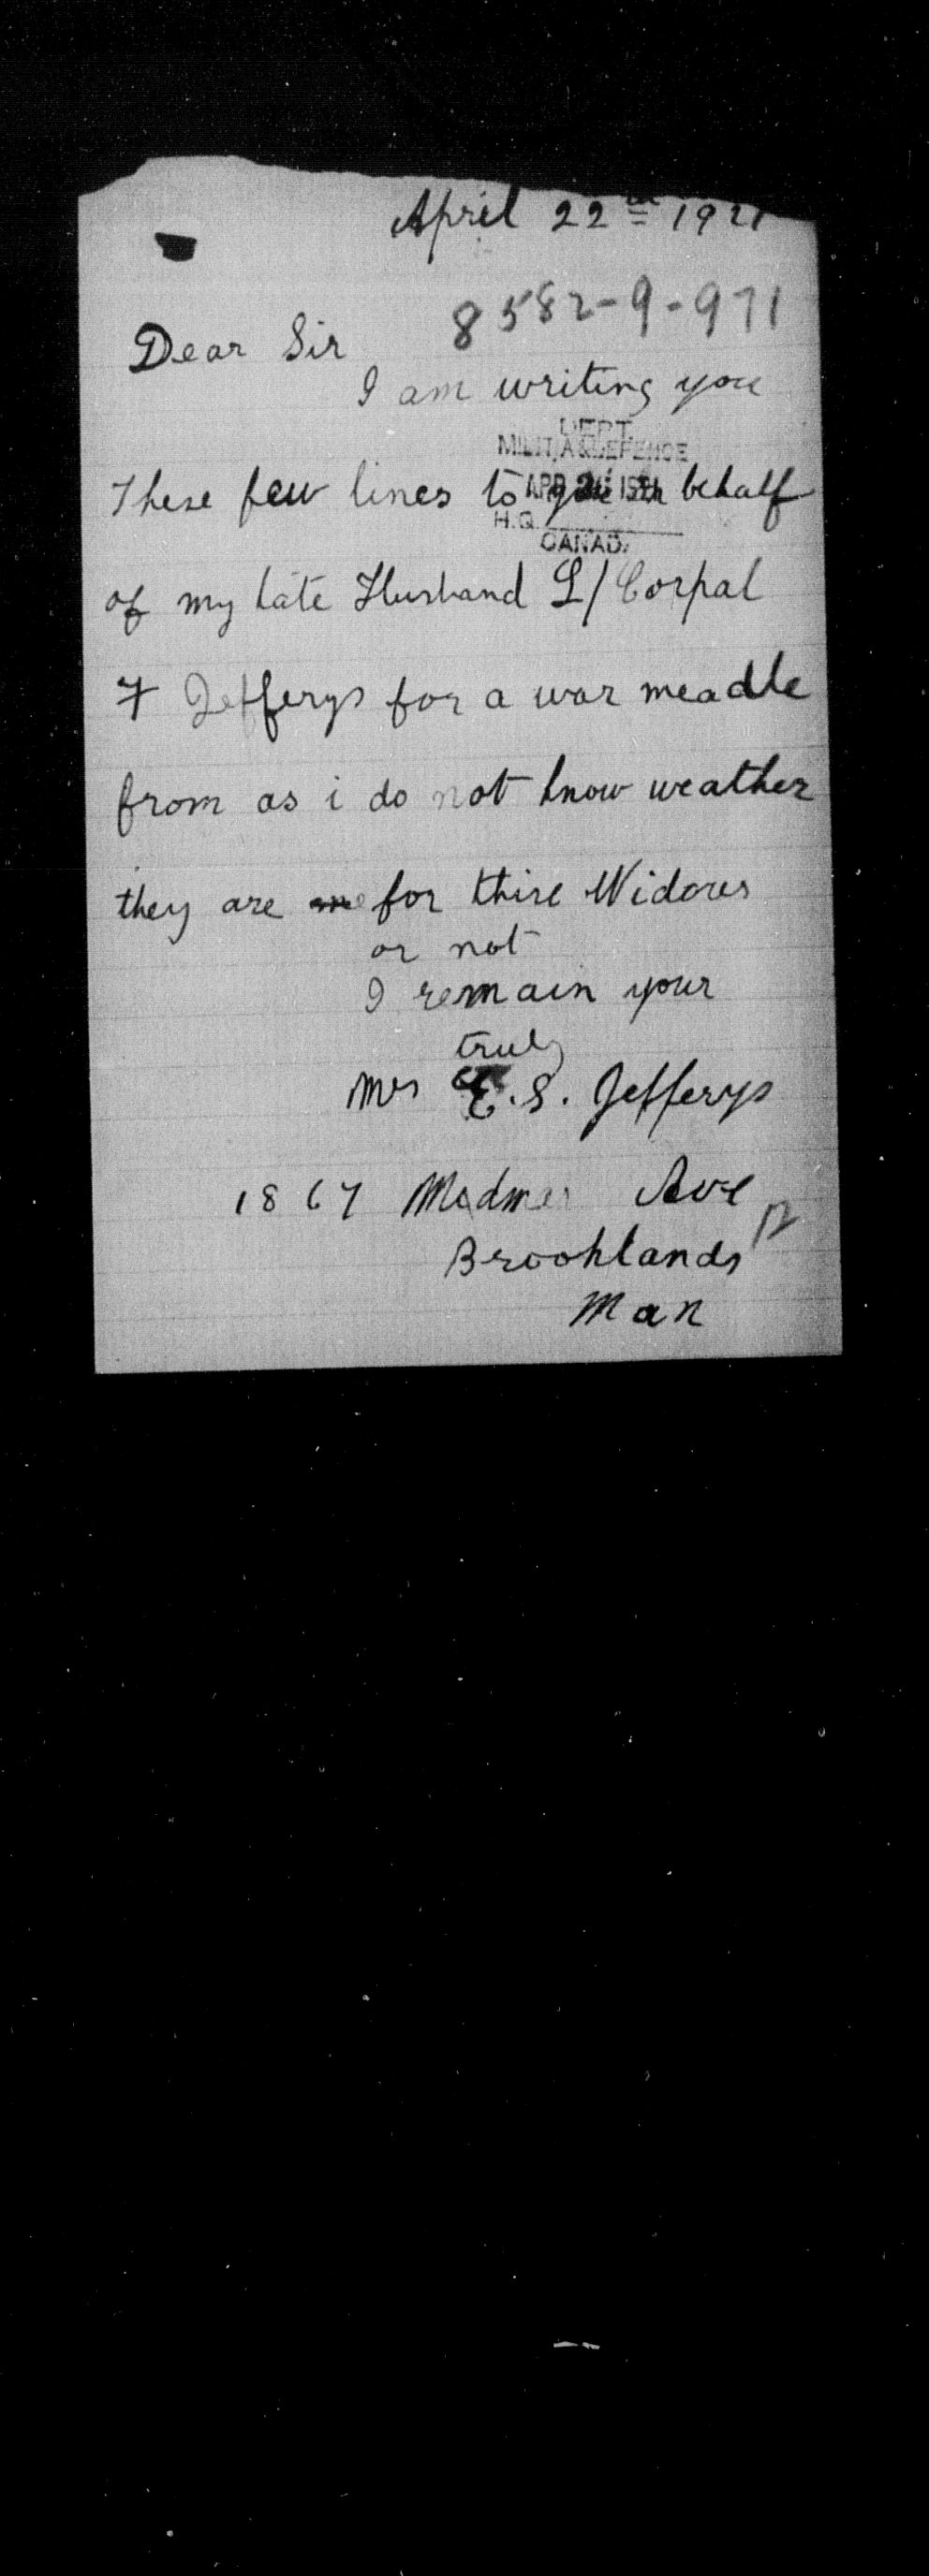 April 22nd 1921
8582-9-971
Dear Sir
I am writing you
DEPT.
MILITIA & DEFENCE
These few lines to you in behalf
APR 1921
H.Q.
CANADA
of my late Husband L/Corpal
F Jefferys for a war meadle
from as i do not know weather
they are for thire Widows
or not
I remain your
truly
Mrs E.S. Jefferys
1867 Ave
Brooklands
Man